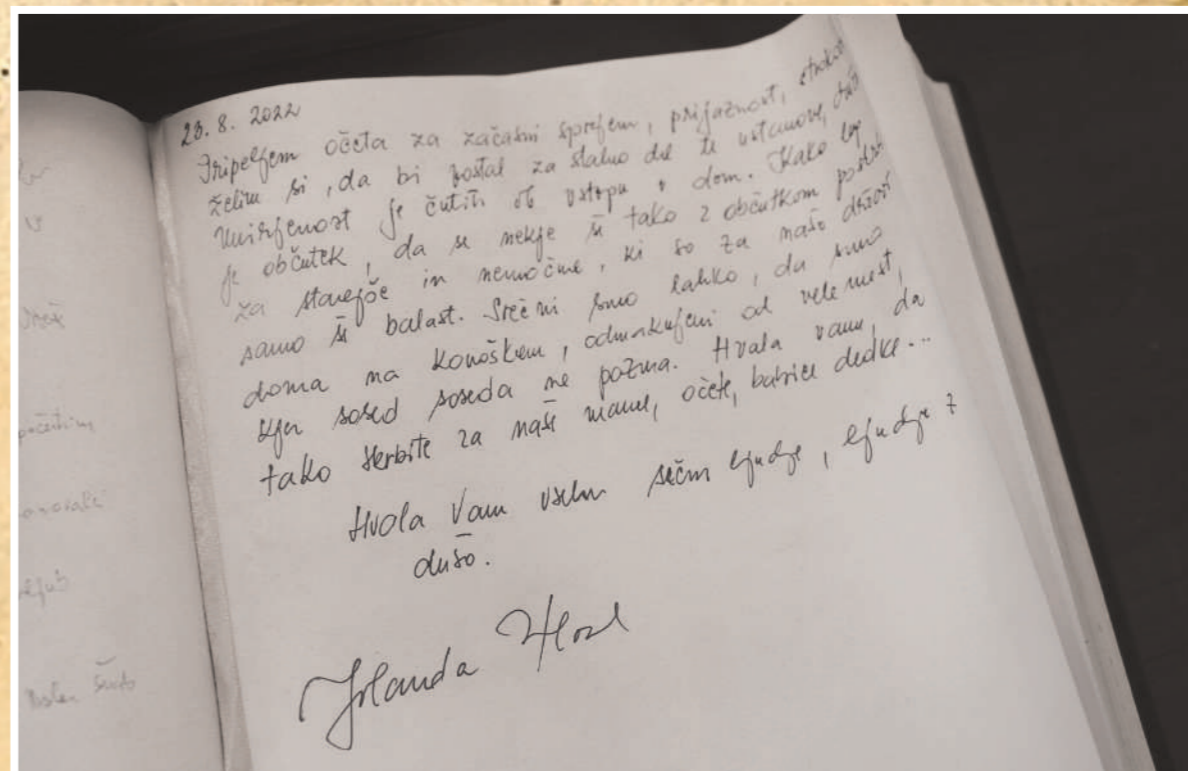 23. 8. 2022
Pripeljem očeta za začasni sprejem, prijaznost,
želim si, da bi postal za stalno del te ustanove,
Umirjenost je čutiti ob vstopu v dom. Kako lep
je občutek, da se nekje še tako z občutkom
za starejše in nemočne, ki so za našo državo
samo še balast. Srečni smo lahko, da smo
doma na Konjiškem, odmaknjeni od velemest,
kjer sosed soseda ne pozna. Hvala vam, da
tako skrbite za naše mame, očete, babice dedke...
Hvala Vam vsem srčnim ljudje, ljudje z
dušo.
Jolanda